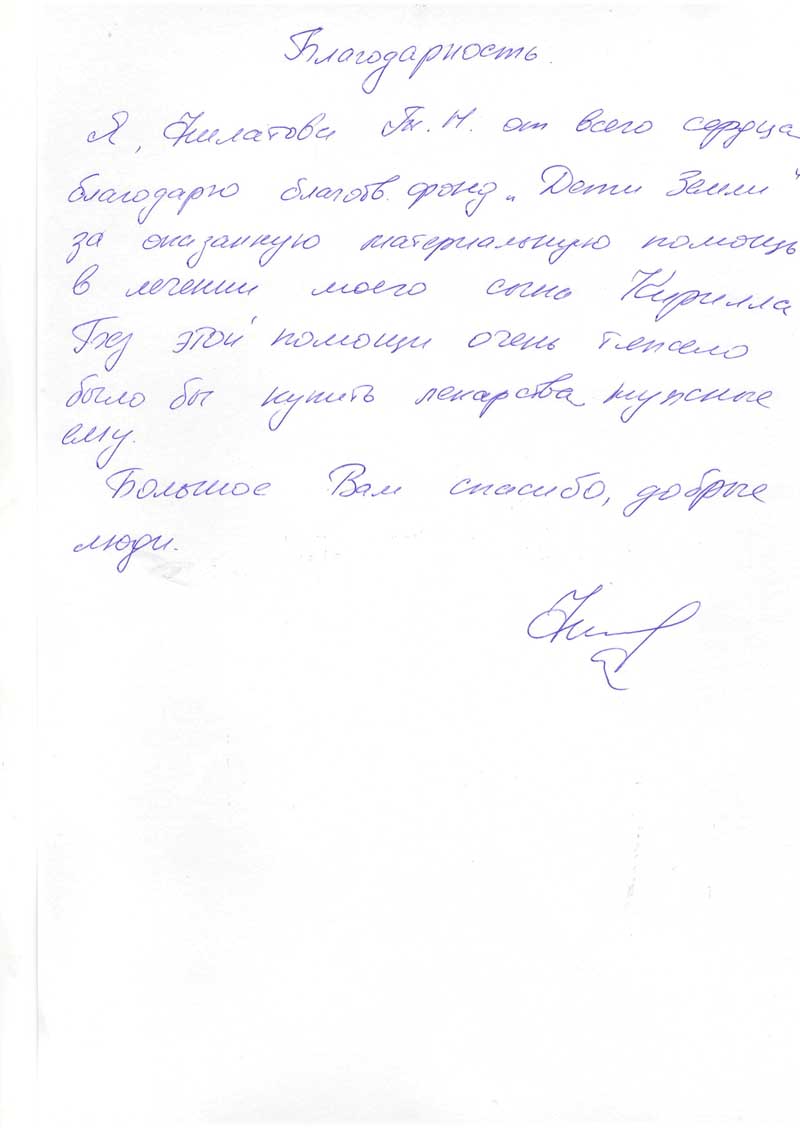 Благодарность.
Я, Филатова Т. Н. от всего сердца
благодарю благотв. фонд „Дети Земли"
за оказанную материальную помощь
в лечении моего сына Кирилла
Без этой помощи очень тяжело
было бы купить лекарства нужные
ему.
Большое Вам спасибо, добрые
люди.